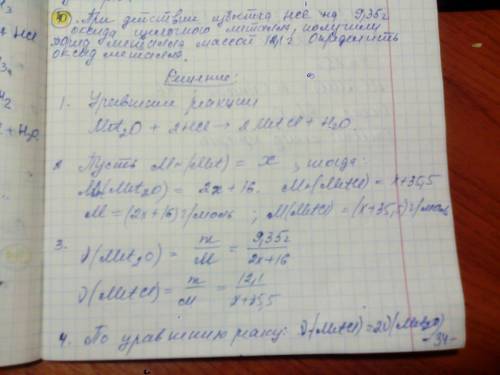 При действии избытка HCl на 9,35г
оксида щелочного металла, получили
хлорид металла массой 12,1 г. Определить
оксид металла.
Решение:
1. Уравнение реакции
Met₂O + 2HCl → 2MetCl + H₂O.
2. Пусть Mr(Met) = X, тогда:
Mr(Met₂O) = 2x+16. Mr(MetCl) = x+35,5
M = (2x+16) г/моль ; M(MetCl) = (x+35,5) г/моль
3. ν(Met₂O) = m/M = 9,35г/2x+16
ν(MetCl) = m/M = 12,1/x+35,5
4. По уравнению реакц: ν(MetCl) = 2ν(Met₂O)
-34-